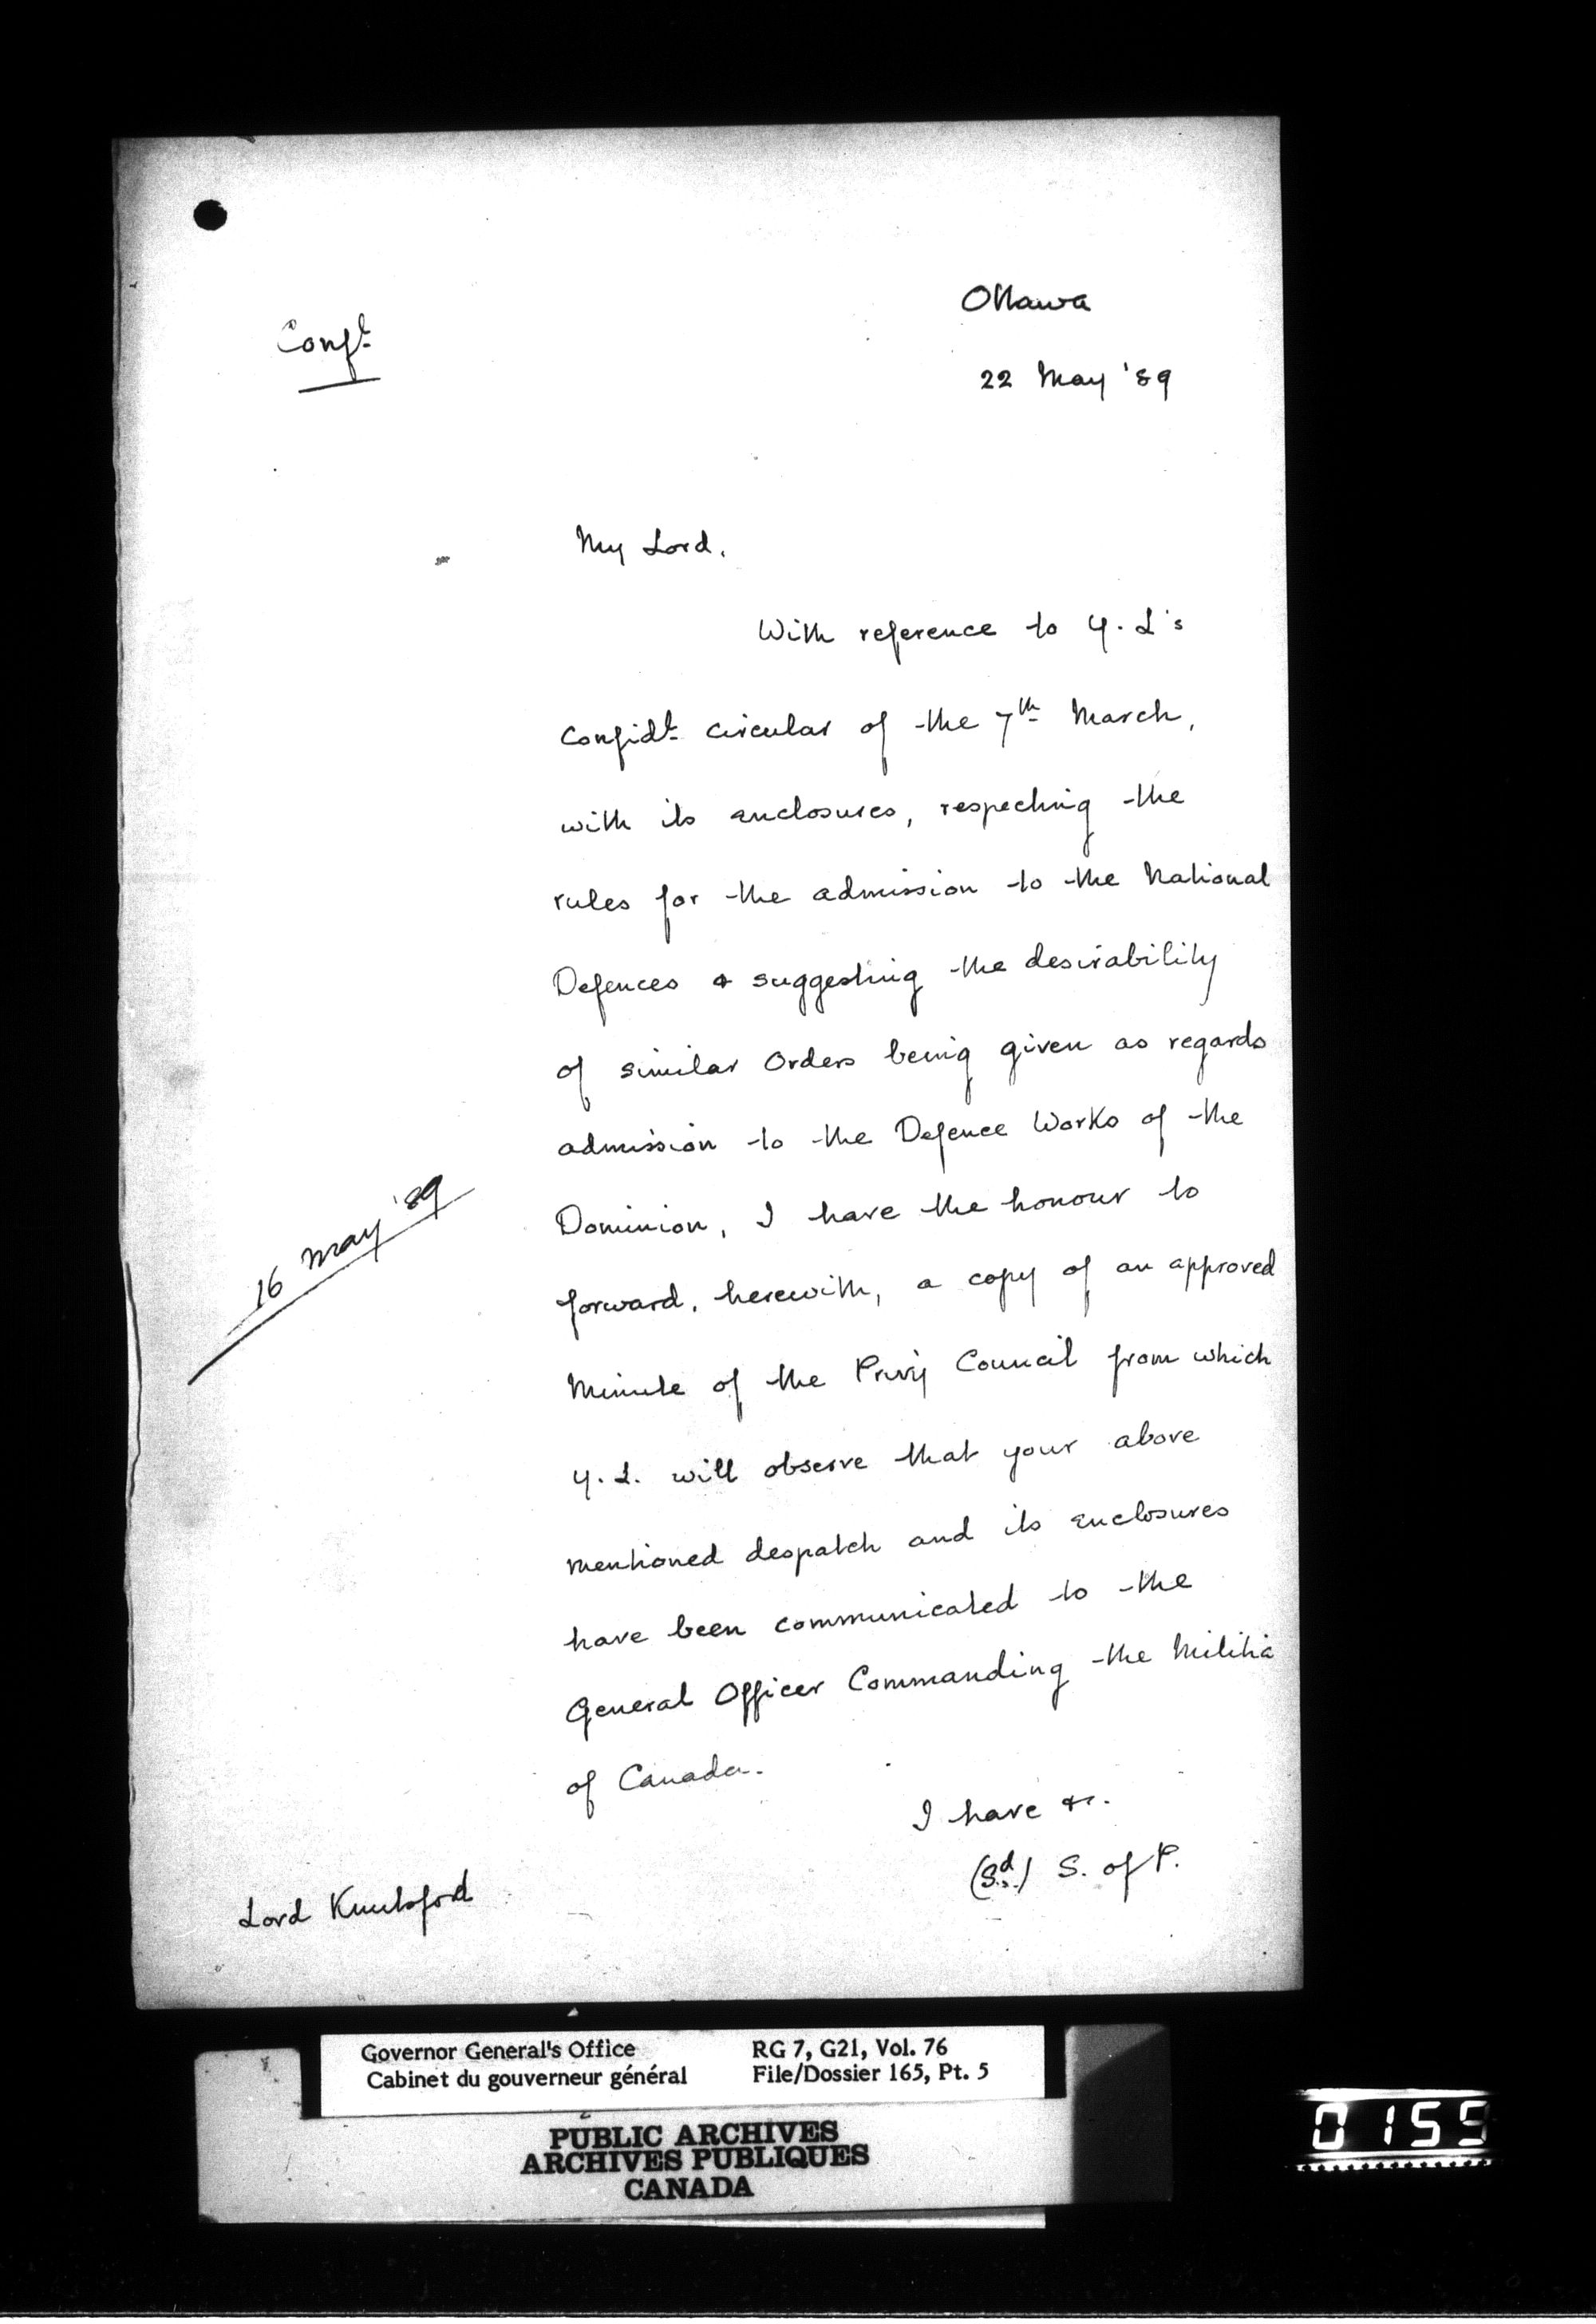 Ottawa
Conf.l
22 May '89
My Lord,
With reference to Y. L's
Confid.l circular of the 7th March,
with its enclosures, respecting the
rules for the admission to the National
Defences & suggesting the desirability
of similar Orders being given as regards
admission to the Defence Works of the
Dominion, I have the honour to
forward, herewith, a copy of an approved
16 May '89
Minute of the Privy Council from which
Y. L. will observe that your above
mentioned despatch and its enclosures
have been communicated to the
General Officer Commanding the Militia
of Canada.
I have &c.
(Sd.) S. of P.
Lord Knutsford
Governor General's Office RG 7, G21, Vol. 76
Cabinet du gouverneur général File/Dossier 165, Pt. 5
PUBLIC ARCHIVES
ARCHIVES PUBLIQUES
CANADA
0155